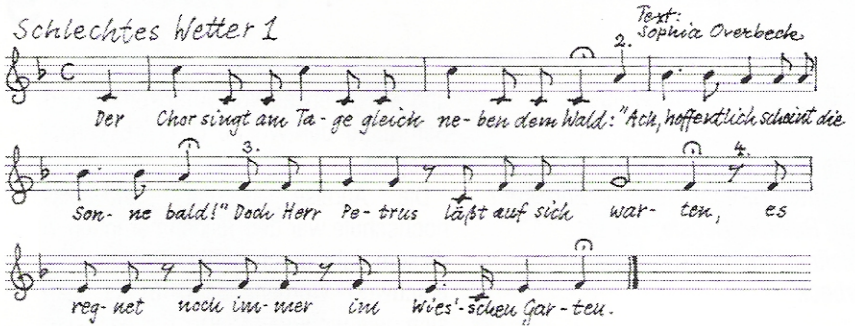 Schlechtes Wetter 1
Text:
Sophia Overbeck
2.
Der Chor singt am Ta-ge gleich ne-ben dem Wald: "Ach, hoffentlich scheint die
3. 4.
Son-ne bald!" Doch Herr Pe-trus läßt auf sich war-ten, es
reg-net noch im-mer im Wies'-schen Gar-ten.